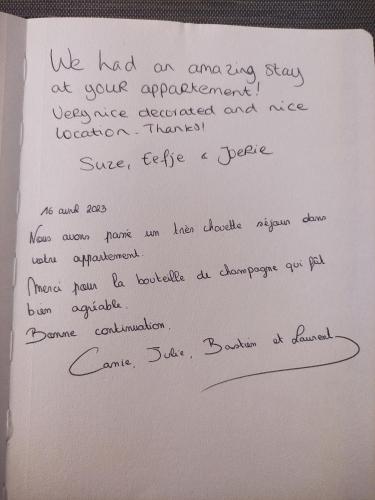 We had an amazing stay
at your appartement!
Very nice decorated and nice
location. Thanks!
Suze, Eefje & Joerie
16 avril 2023
Nous avons passé un très chouette séjour dans
votre appartement.
Merci pour la bouteille de champagne qui fût
bien agréable.
Bonne continuation.
Camie, Julie, Bastien et Laurent